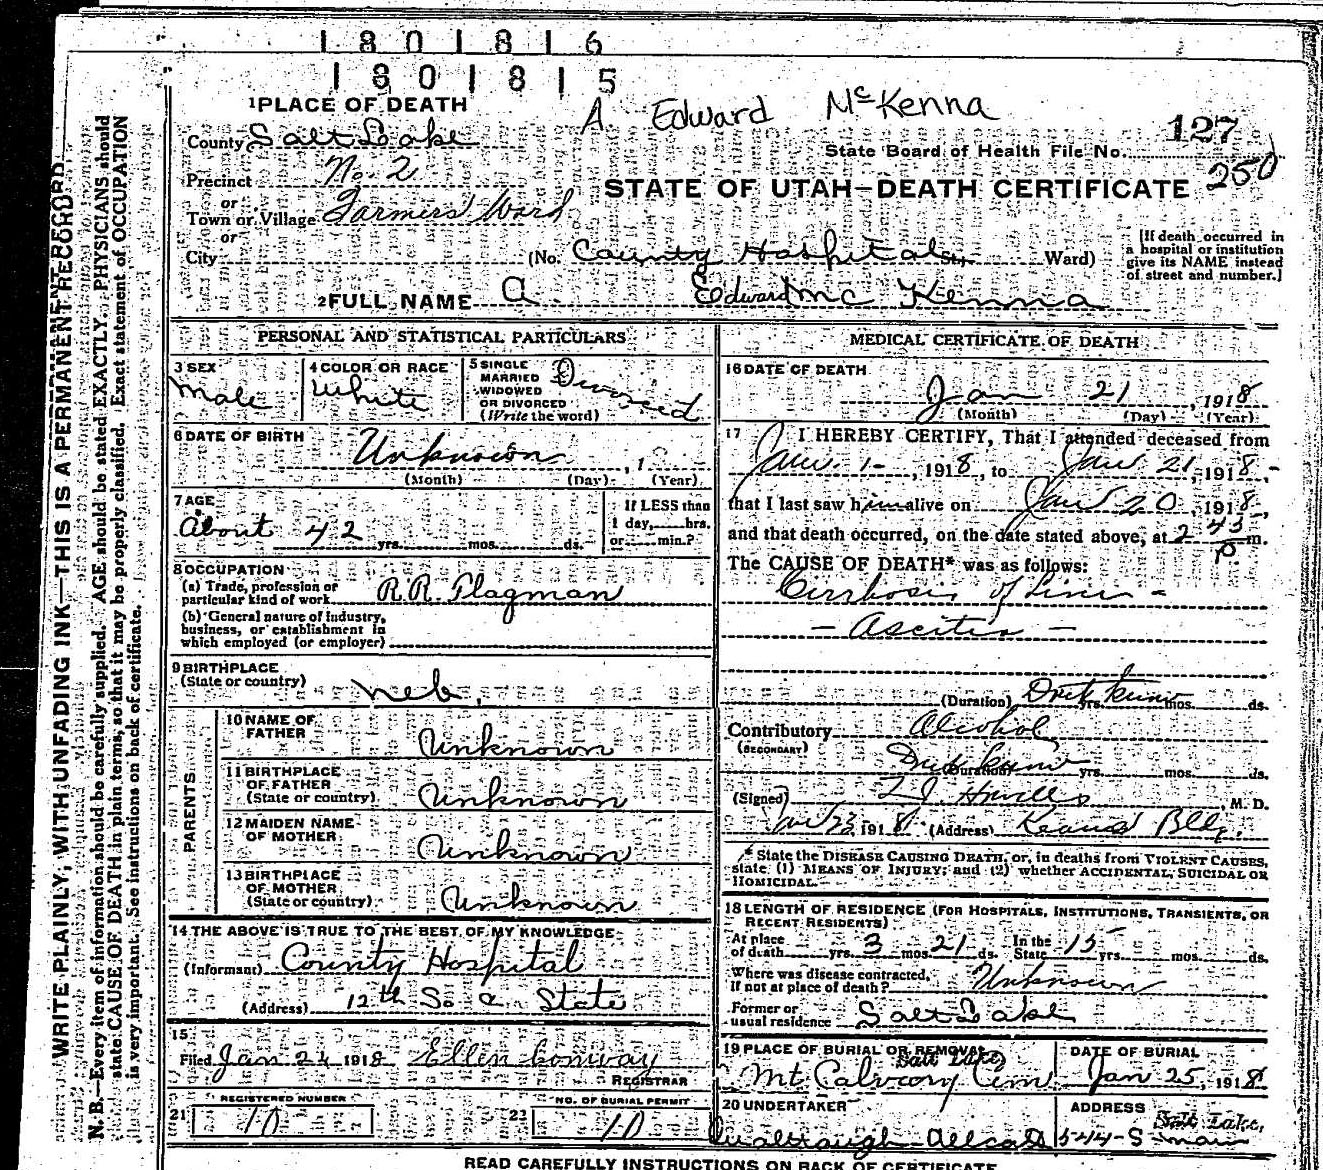 1801816
1801815
A Edward McKenna
1 PLACE OF DEATH
127
County Salt Lake
State Board of Health File No.
250
Precinct No. 2
STATE OF UTAH—DEATH CERTIFICATE
or
Town or Village Farmers Ward
or
City (No. County Hospital St., Ward)
[If death occurred in a hospital or institution give its NAME instead of street and number.]
2 FULL NAME A. Edward Mc Kenna
PERSONAL AND STATISTICAL PARTICULARS
3 SEX
Male
4 COLOR OR RACE
White
5 SINGLE
MARRIED
WIDOWED
OR DIVORCED
(Write the word)
Divorced
6 DATE OF BIRTH
Unknown , 1
(Month) (Day) (Year)
7 AGE
About 42 yrs. mos. ds.
If LESS than
1 day, hrs.
or min.?
8 OCCUPATION
(a) Trade, profession or
particular kind of work R.R. Flagman
(b) General nature of industry,
business, or establishment in
which employed (or employer)
9 BIRTHPLACE
(State or country) Neb.
PARENTS
10 NAME OF
FATHER Unknown
11 BIRTHPLACE
OF FATHER
(State or country) Unknown
12 MAIDEN NAME
OF MOTHER Unknown
13 BIRTHPLACE
OF MOTHER
(State or country) Unknown
14 THE ABOVE IS TRUE TO THE BEST OF MY KNOWLEDGE
(Informant) County Hospital
(Address) 12th So. a State
15
Filed Jan 24 1918 Ellen Conway
REGISTRAR
REGISTERED NUMBER
21 10
NO. OF BURIAL PERMIT
22 10
MEDICAL CERTIFICATE OF DEATH
16 DATE OF DEATH
Jan 21 , 1918
(Month) (Day) (Year)
17 I HEREBY CERTIFY, That I attended deceased from
Jan. 1- , 1918, to Jan 21, 1918,
that I last saw him alive on Jan 20, 1918,
and that death occurred, on the date stated above, at 2 43 P m.
The CAUSE OF DEATH* was as follows:
Cirrhosis of Liver -
- Ascites -
(Duration) Dont know yrs. mos. ds.
Contributory Alcohol
(SECONDARY)
(Duration) Dont know yrs. mos. ds.
(Signed) , M. D.
Jan 23, 1918 (Address) Bldg.
* State the DISEASE CAUSING DEATH, or, in deaths from VIOLENT CAUSES,
state (1) MEANS OF INJURY; and (2) whether ACCIDENTAL, SUICIDAL OR
HOMICIDAL.
18 LENGTH OF RESIDENCE (FOR HOSPITALS, INSTITUTIONS, TRANSIENTS, OR
RECENT RESIDENTS)
At place
of death yrs. 3 mos. 21 ds. In the
State 15 yrs. mos. ds.
Where was disease contracted,
if not at place of death? Unknown
Former or
usual residence Salt Lake
19 PLACE OF BURIAL OR REMOVAL
Salt Lake
Mt. Calvary Cem
DATE OF BURIAL
Jan 25, 1918
20 UNDERTAKER
ADDRESS
Salt Lake,
544 S Main
READ CAREFULLY INSTRUCTIONS ON BACK OF CERTIFICATE
WRITE PLAINLY, WITH UNFADING INK—THIS IS A PERMANENT RECORD
N. B.—Every item of information should be carefully supplied. AGE should be stated EXACTLY. PHYSICIANS should
state CAUSE OF DEATH in plain terms, so that it may be properly classified. Exact statement of OCCUPATION
is very important. See instructions on back of certificate.